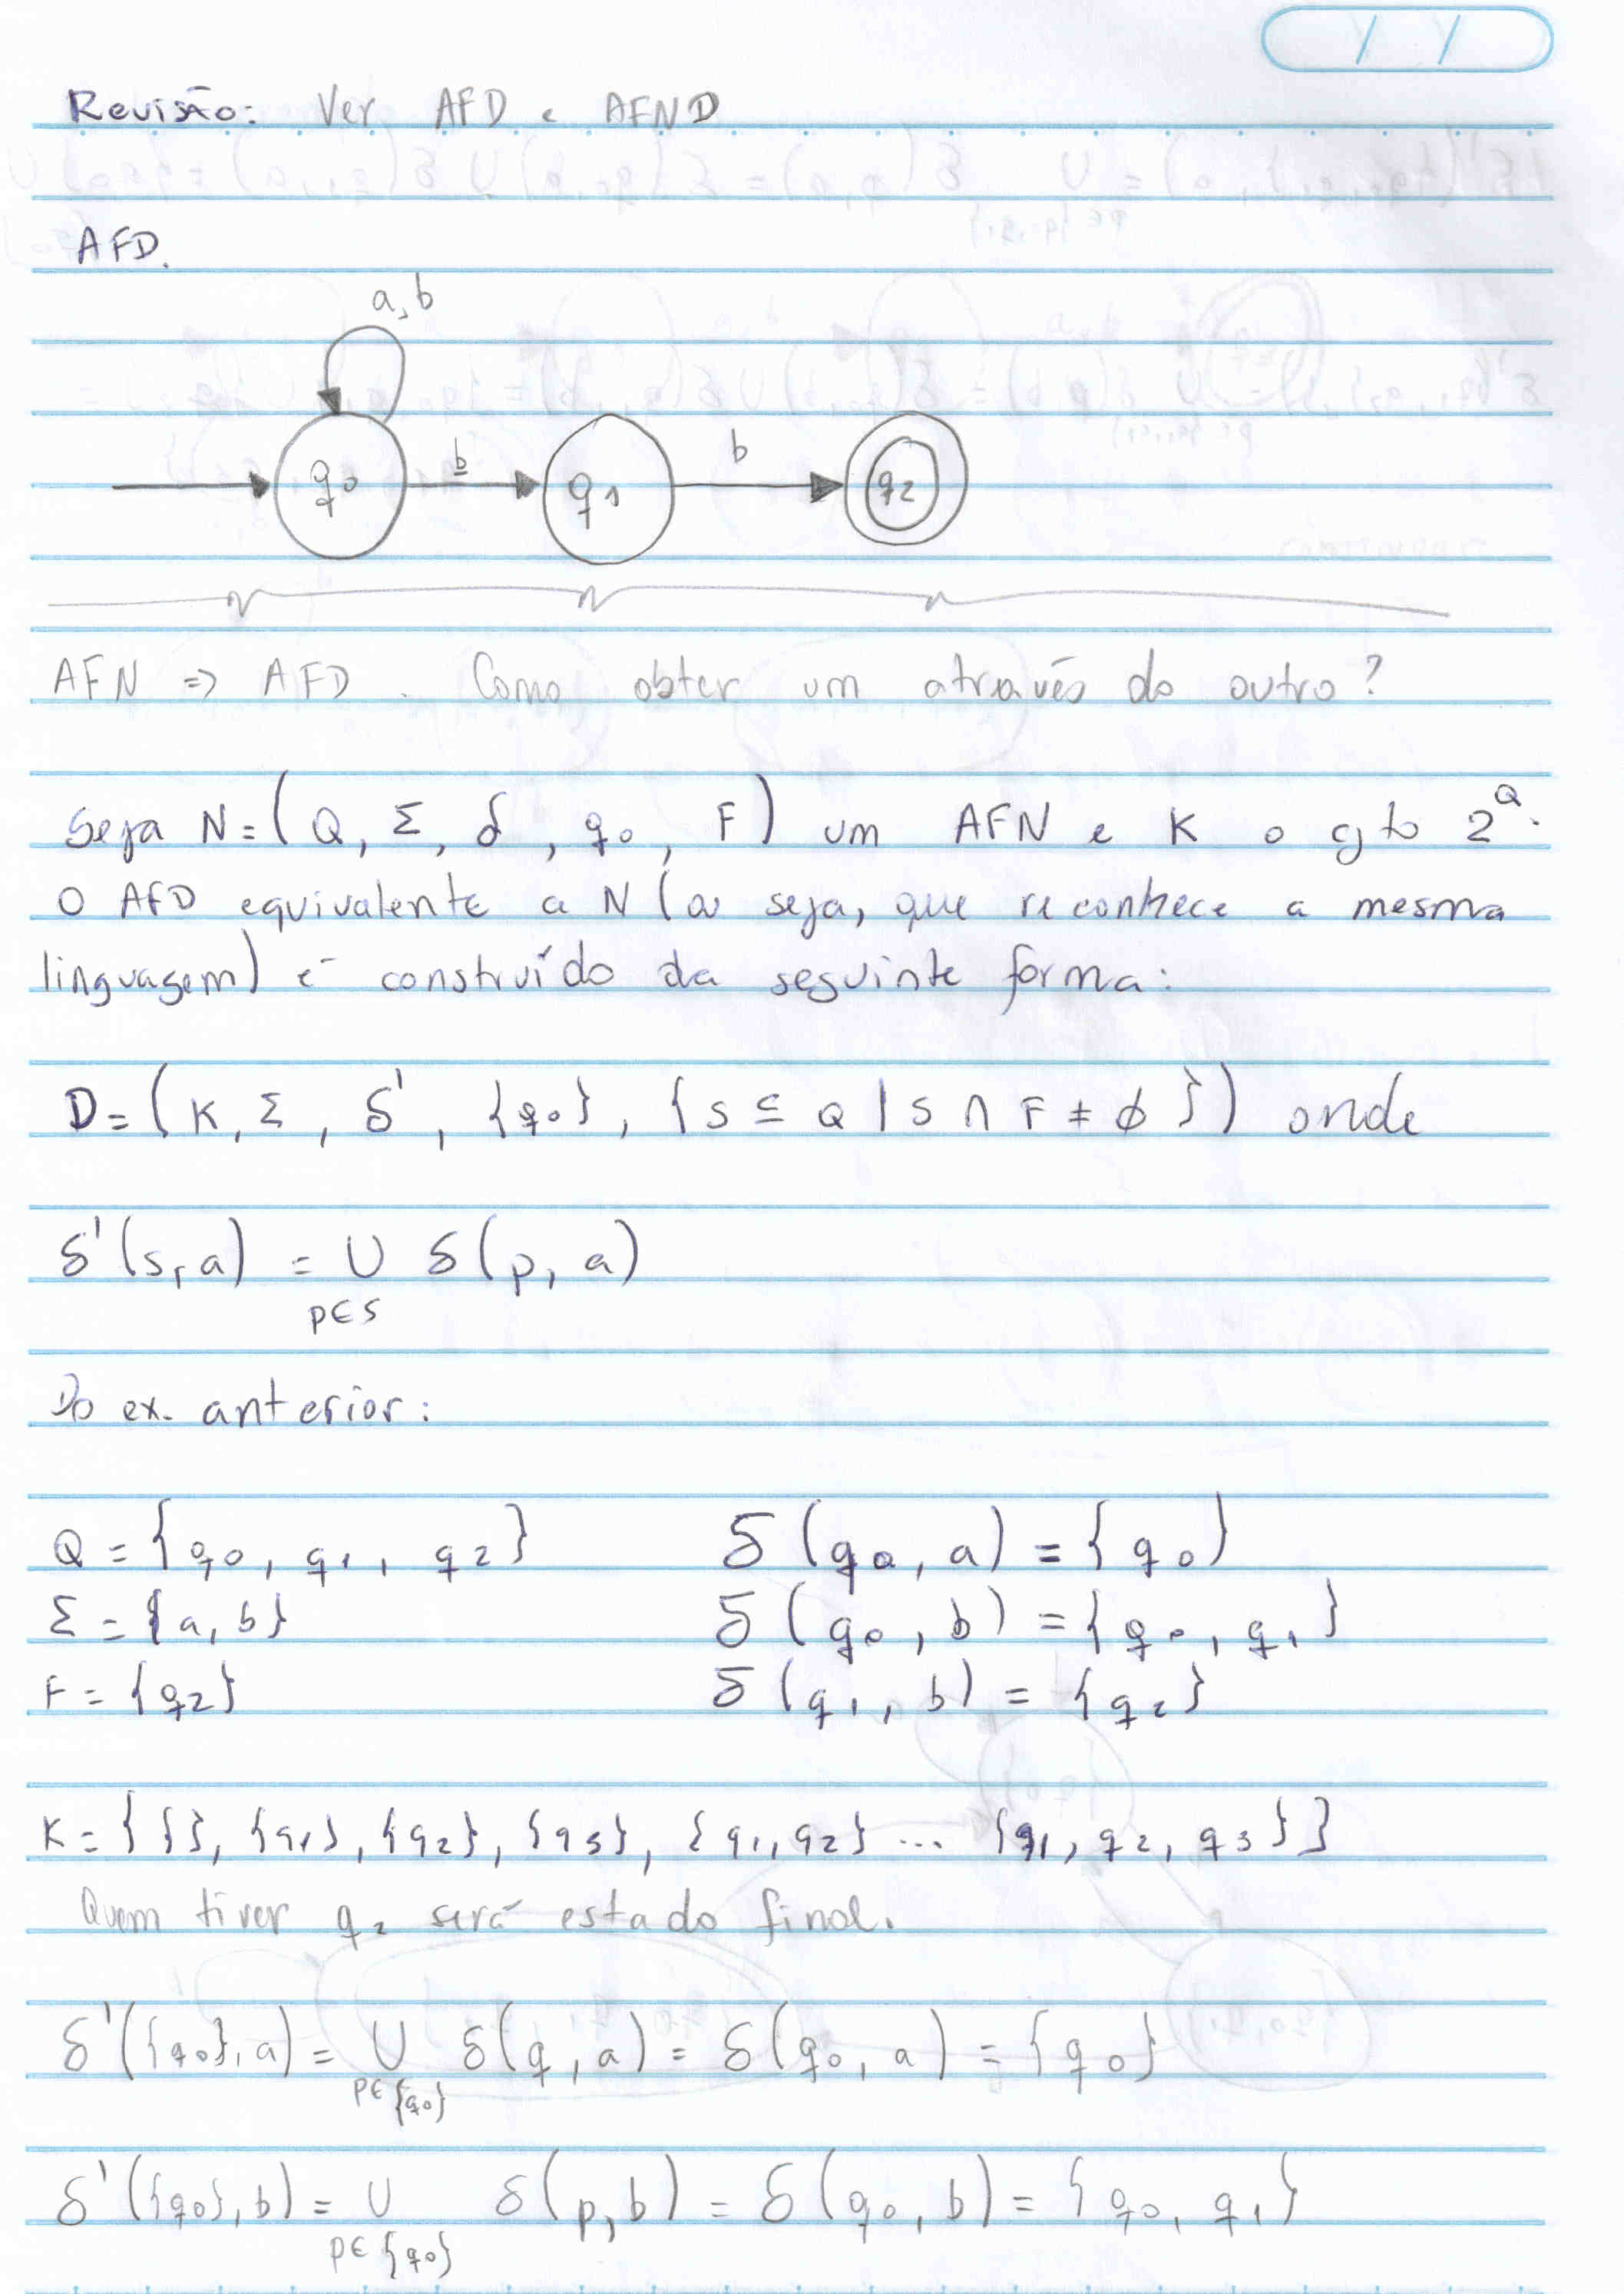 Revisão: Ver AFD e AFND
AFD.
a, b
q0 b q1 b q2
AFN => AFD. Como obter um através do outro?
Seja N = (Q, Σ, δ, q0, F) um AFN e K o cjto 2^Q.
O AFD equivalente a N (ou seja, que reconhece a mesma
linguagem) é construído da seguinte forma:
D = (K, Σ, δ', {q0}, {S ⊆ Q | S ∩ F ≠ ∅}) onde
δ'(s, a) = ∪ δ(p, a)
p∈S
Do ex. anterior:
Q = {q0, q1, q2} δ(q0, a) = {q0}
Σ = {a, b} δ(q0, b) = {q0, q1}
F = {q2} δ(q1, b) = {q2}
K = {{}, {q1}, {q2}, {q3}, {q1, q2} ... {q1, q2, q3}}
Quem tiver q2 será estado final.
δ'({q0}, a) = ∪ δ(q, a) = δ(q0, a) = {q0}
p∈{q0}
δ'({q0}, b) = ∪ δ(p, b) = δ(q0, b) = {q0, q1}
p∈{q0}